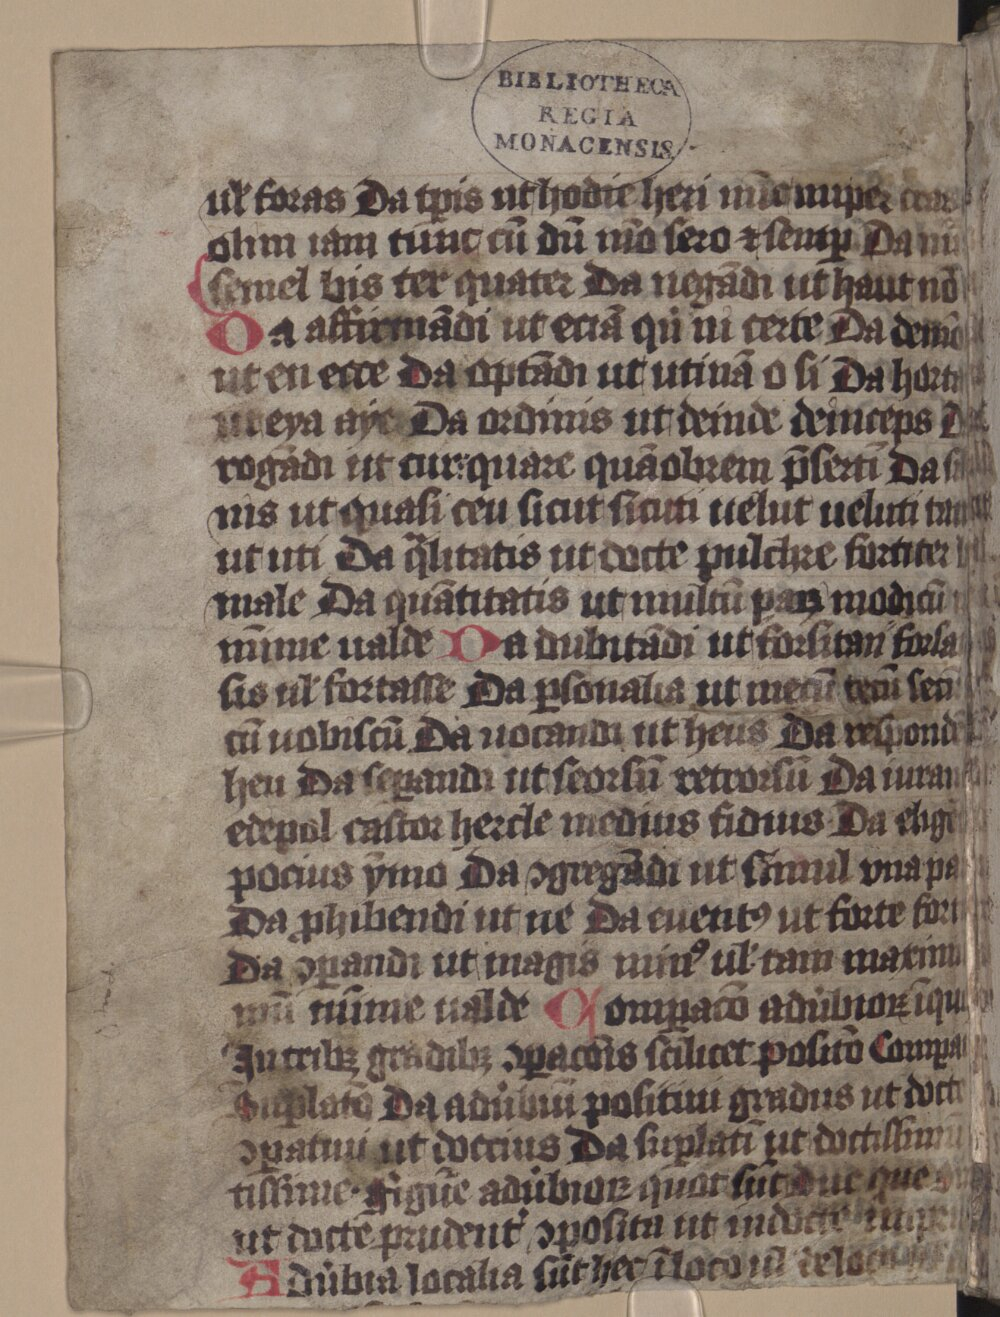 BIBLIOTHECA
REGIA
MONACENSIS
ul̄ foras Da tp̄is ut hodie heri nūc nuper
olim iam tunc cū dū mō sero ⁊ semꝑ Da
semel bis ter quater Da negādi ut haut nō
Da affirmādi ut eciā qͥ ni certe Da
ut en ecce Da optādi ut utinā o si Da
ut eya aye Da ordinis ut deinde deinceps
rogādi ut cur quare quāobrem p̄sertī Da
nis ut quasi ceu sicut sicuti uelut ueluti
ut uti Da q̄litatis ut docte pulchre fortiter
male Da quātitatis ut multū paꝝ modicū
mīme ualde Da dubitādi ut forsitan
sis ul̄ fortasse Da ꝑsonalia ut mecū tecū
cū uobiscū Da uocandi ut heus Da
heu Da seꝑandi ut seorsū retrorsū Da
edepol castor hercle medius fidius Da
pocius ȳmo Da ꝯgregādi ut simul vna
Da ꝓhibendi ut ne Da euentꝰ ut forte
Da ꝯꝑandi ut magis minꝰ ul̄ tam
mū mīme ualde Comꝑacō adūbioꝝ
In tribꝫ gradibꝫ ꝯꝑacōis scilicet positō
Suꝑlatō Da adūbiū positiui gradus ut
ꝯꝑatiui ut doccius Da suꝑlatī ut
tissime figūe adūbioꝝ quot sūt due que
ut docte prudent᷑ ꝯposita ut indocte
Adūbia localia sūt hec ī loco ul̄ de loco